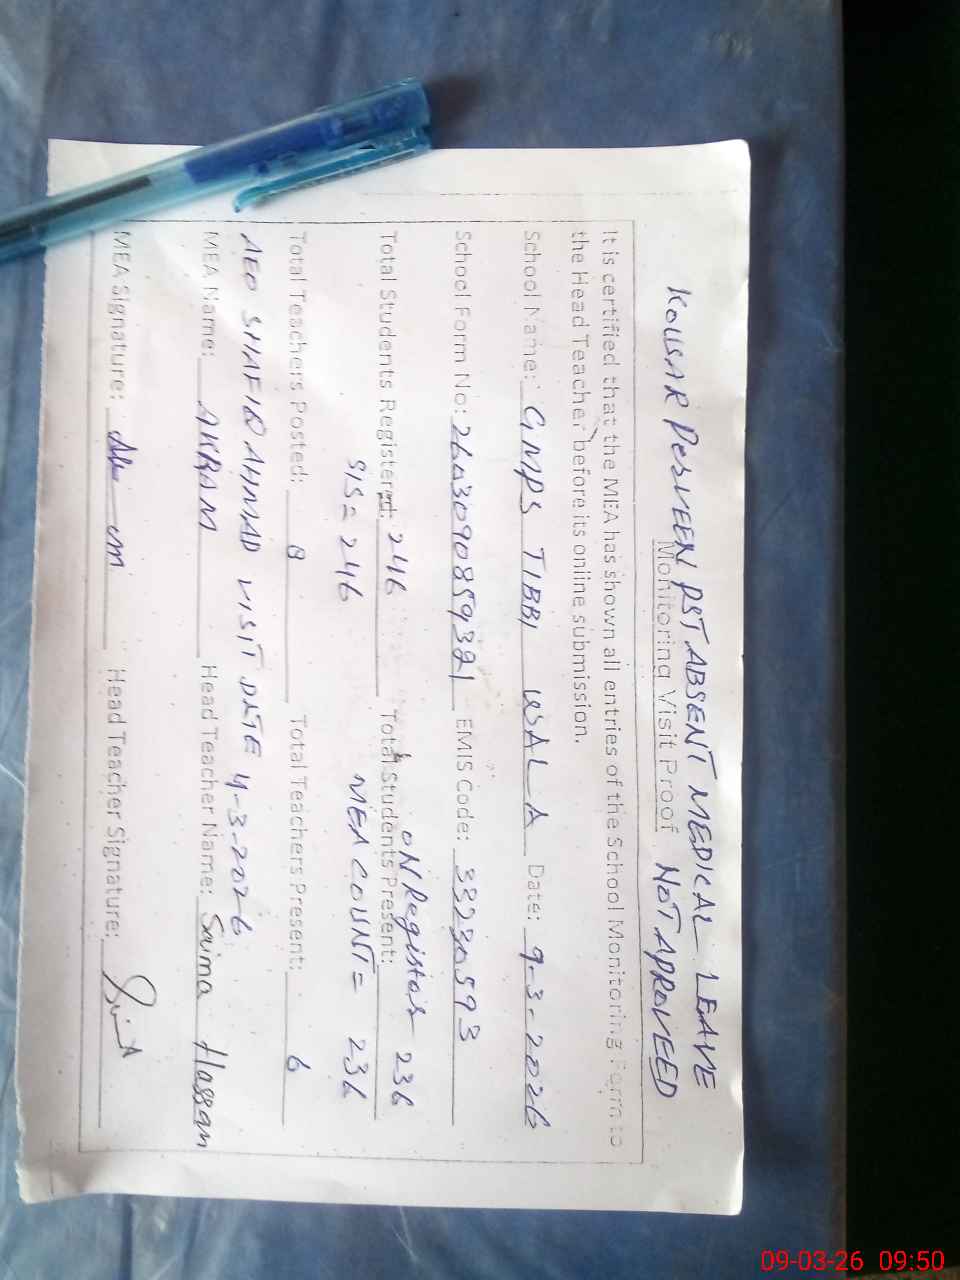 KOUSAR PERVEEN PST ABSENT MEDICAL LEAVE
NOT APROVEED
Monitoring Visit Proof
It is certified that the MEA has shown all entries of the School Monitoring Form to
the Head Teacher before its online submission.
School Name: GMPS TIBBI WALA Date: 9-3-2026
School Form No: EMIS Code:
Total Students Registered: 246 Total Students Present: ON Register 236
SIS = 246 MEA COUNT = 236
Total Teachers Posted: 8 Total Teachers Present: 6
AEO SHAFIQ AHMAD VISIT DATE 4-3-2026
MEA Name: AKRAM Head Teacher Name: Saima Hassan
MEA Signature: Head Teacher Signature:
09-03-26 09:50